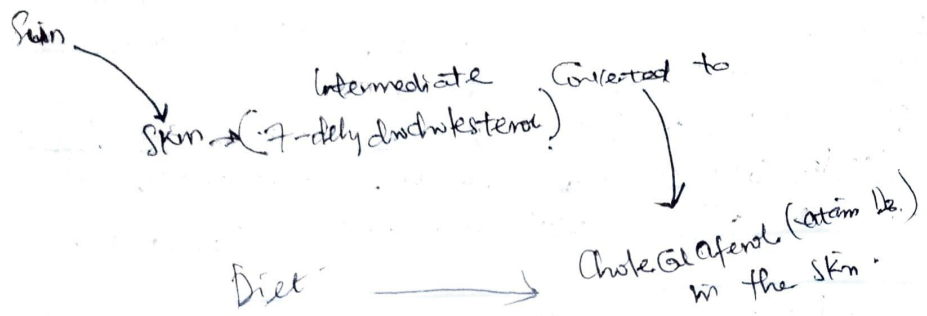 Sun
Intermediate Converted to
Skin → (7-dehydrocholesterol)
Cholecalciferol (vitamin D3)
in the skin.
Diet →